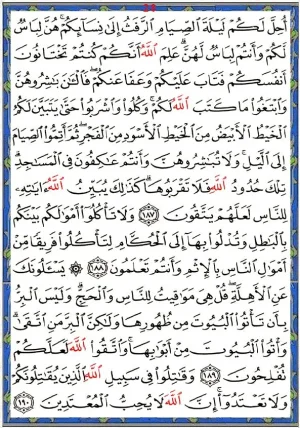 ٢٩
أُحِلَّ لَكُمْ لَيْلَةَ ٱلصِّيَامِ ٱلرَّفَثُ إِلَىٰ نِسَآئِكُمْ هُنَّ لِبَاسٌ
لَّكُمْ وَأَنتُمْ لِبَاسٌ لَّهُنَّ عَلِمَ ٱللَّهُ أَنَّكُمْ كُنتُمْ تَخْتَانُونَ
أَنفُسَكُمْ فَتَابَ عَلَيْكُمْ وَعَفَا عَنكُمْ فَٱلْـَٰٔنَ بَـٰشِرُوهُنَّ
وَٱبْتَغُوا۟ مَا كَتَبَ ٱللَّهُ لَكُمْ وَكُلُوا۟ وَٱشْرَبُوا۟ حَتَّىٰ يَتَبَيَّنَ لَكُمُ
ٱلْخَيْطُ ٱلْأَبْيَضُ مِنَ ٱلْخَيْطِ ٱلْأَسْوَدِ مِنَ ٱلْفَجْرِ ثُمَّ أَتِمُّوا۟ ٱلصِّيَامَ
إِلَى ٱلَّيْلِ وَلَا تُبَـٰشِرُوهُنَّ وَأَنتُمْ عَـٰكِفُونَ فِى ٱلْمَسَـٰجِدِ
تِلْكَ حُدُودُ ٱللَّهِ فَلَا تَقْرَبُوهَا كَذَٰلِكَ يُبَيِّنُ ٱللَّهُ ءَايَـٰتِهِۦ
لِلنَّاسِ لَعَلَّهُمْ يَتَّقُونَ ١٨٧ وَلَا تَأْكُلُوٓا۟ أَمْوَٰلَكُم بَيْنَكُم
بِٱلْبَـٰطِلِ وَتُدْلُوا۟ بِهَآ إِلَى ٱلْحُكَّامِ لِتَأْكُلُوا۟ فَرِيقًا مِّنْ
أَمْوَٰلِ ٱلنَّاسِ بِٱلْإِثْمِ وَأَنتُمْ تَعْلَمُونَ ١٨٨ ۞ يَسْـَٔلُونَكَ
عَنِ ٱلْأَهِلَّةِ قُلْ هِىَ مَوَٰقِيتُ لِلنَّاسِ وَٱلْحَجِّ وَلَيْسَ ٱلْبِرُّ
بِأَن تَأْتُوا۟ ٱلْبُيُوتَ مِن ظُهُورِهَا وَلَـٰكِنَّ ٱلْبِرَّ مَنِ ٱتَّقَىٰ
وَأْتُوا۟ ٱلْبُيُوتَ مِنْ أَبْوَٰبِهَا وَٱتَّقُوا۟ ٱللَّهَ لَعَلَّكُمْ
تُفْلِحُونَ ١٨٩ وَقَـٰتِلُوا۟ فِى سَبِيلِ ٱللَّهِ ٱلَّذِينَ يُقَـٰتِلُونَكُمْ
وَلَا تَعْتَدُوٓا۟ إِنَّ ٱللَّهَ لَا يُحِبُّ ٱلْمُعْتَدِينَ ١٩٠